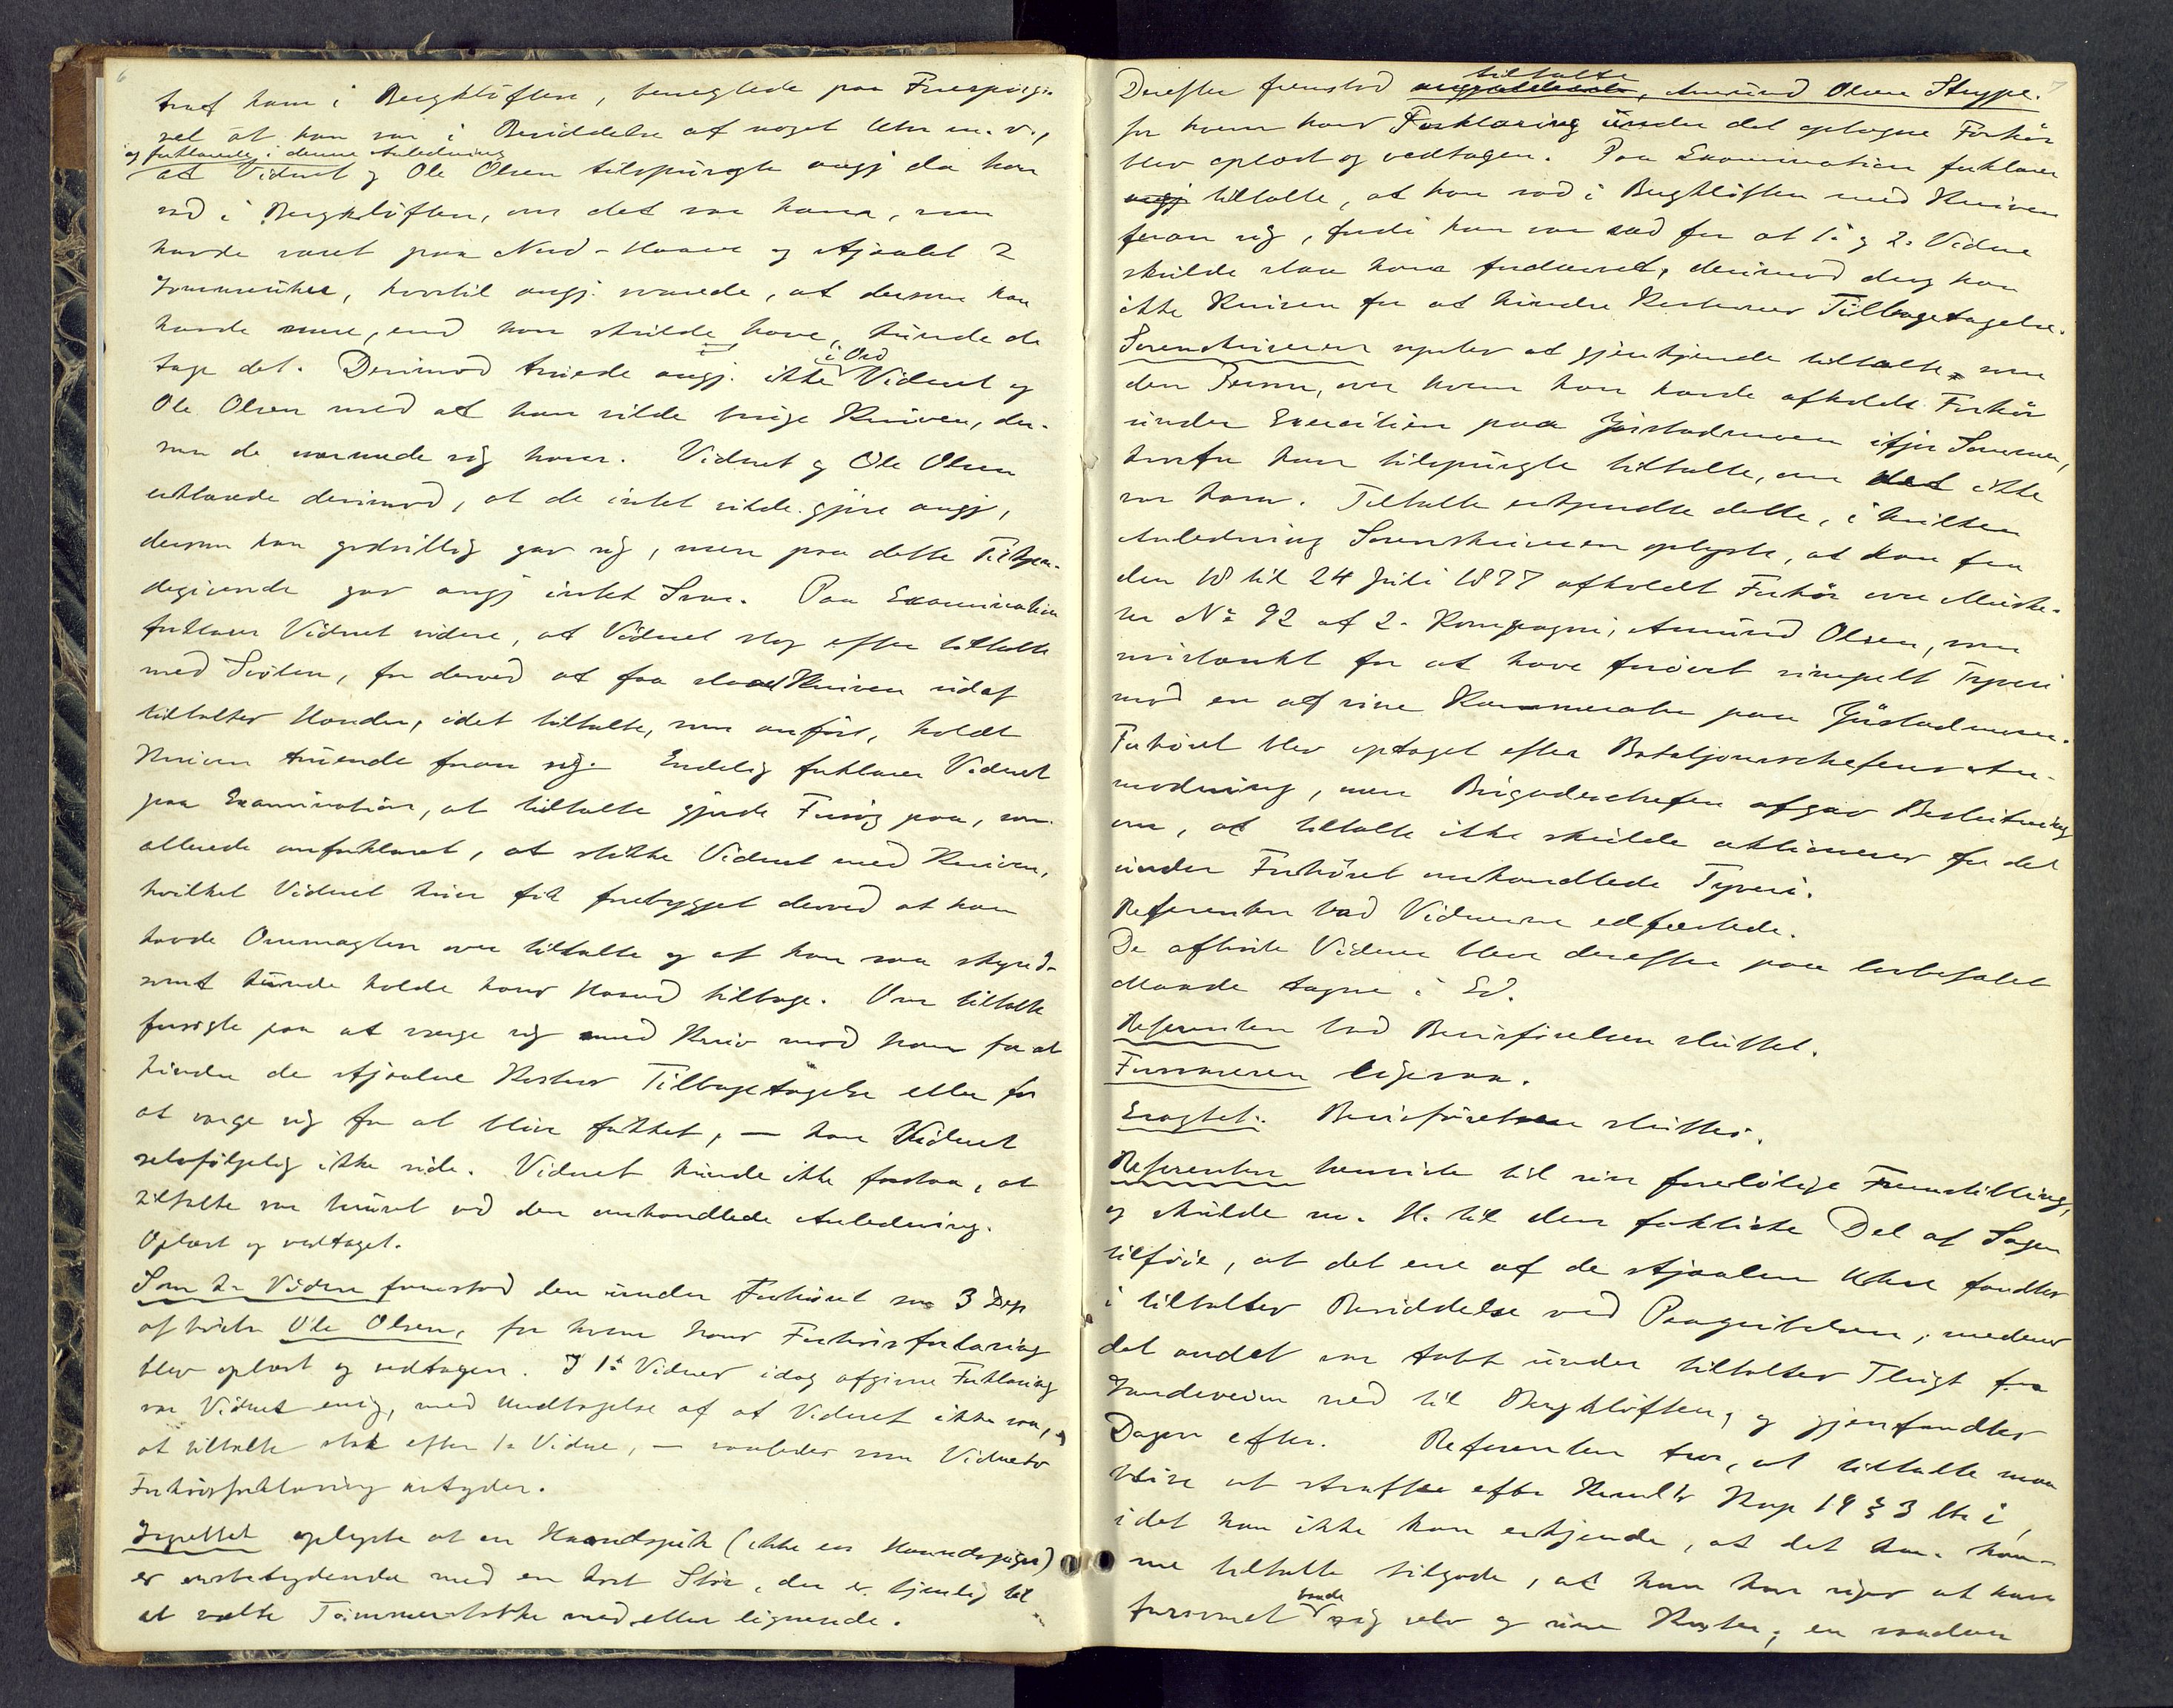 6
traf ham i Bergkløften, benegtede paa Forespørgs-
sel at han var i Besiddelse af noget Uhr m. v.,
og forklarede i denne Anledning
at Vidnet og Ole Olsen tilspurgte angj da han
sad i Bergkløften, om det var ham, som
havde været paa Nord-       og stjaalet 2
Lommeuhre, hvortil angj. svarede, at dersom han
havde mere, end han skulde have, kunde de
tage det. Derimod truede angj. ikke i Ord Vidnet og
Ole Olsen med at han vilde bruge Kniven, der-
som de nærmede sig ham. Vidnet og Ole Olsen
erklærede derimod, at de intet vilde gjøre angj,
dersom han godvillig gav sig, men paa dette Tilkjen-
degivende gav angj intet Svar. Paa Examination
forklarer Vidnet videre, at Vidnet slog efter tiltalte
med Støren, for derved at faa slaaet Kniven ud af
tiltaltes Hænder, idet tiltalte, som anført, holdt
Kniven truende foran sig. Endelig forklarer Vidnet
paa Examination, at tiltalte gjorde Forsøg paa, som
allerede anforklaret, at stikke Vidnet med Kniven,
hvilket Vidnet kun fik forebygget derved at han
havde Overmagten over tiltalte og at han saa skynd-
somt kunde holde hans Haand tilbage. Om tiltalte
forsøgte paa at værge sig med Kniv mod ham for at
hindre de stjaalne Kosters Tilbagetagelse eller for
at værge sig for at blive fakket, — kan Vidnet
selvfølgelig ikke vide. Vidnet kunde ikke forstaa, at
tiltalte var beruset ved den omhandlede Anledning.
Oplæst og vedtaget.
Som 2. Vidne fremstod den under Forhøret som 3 Dep
afhørte Ole Olsen, for hvem hans Forhørsforklaring
blev oplæst og vedtagen. I 1ste Vidnes idag afgivne Forklaring
var Vidnet enig, med Undtagelse af at Vidnet ikke saa,
at tiltalte stak efter 1. Vidne, — saaledes som Vidnets
Forhørsforklaring antyder.
Iøvrigt oplystes at en Haandspik (ikke en Haandspiger)
er ensbetydende med en kort Stør, der er tjenlig til
at vælte Tømmerstokke med eller lignende.
7
Derefter fremstod angjældende, tiltalte Amund Olsen Stuype.
for hvem hans Forklaring under det optagne Forhør
blev oplæst og vedtagen. Paa Examination forklarer
angj tiltalte, at han sad i Bergkløften med Kniven
foran sig, fordi han var ræd for at 1. og 2. Vidne
skulde slaa ham fordærvet, derimod drog han
ikke Kniven for at hindre Kosternes Tilbagetagelse.
Sorenskriveren syntes at gjenkjende tiltalte som
den Person, over hvem han havde afholdt Forhør
under Exercitien paa Jørstadmoen ifjor Sommer,
hvorfor han tilspurgte tiltalte, om det ikke
var ham. Tiltalte erkjendte dette, i hvilken
Anledning Sorenskriveren oplyste, at han fra
den 18 til 24 Juli 1877 afholdt Forhør over Muske-
ter No 92 af 2. Kompagni, Amund Olsen, som
mistænkt for at have forøvet simpelt Tyveri
mod en af sine Kammerater paa Jørstadmoen.
Forhøret blev optaget efter Bataljonschefens An-
modning, men Brigadechefen afgav Beslutning
om, at tiltalte ikke skulde aktioneres for det
under Forhøret omhandlede Tyveri.
Referenten bad Vidnerne edfæstede.
De afhørte Vidner blev derefter paa lovbefalet
Maade tagne i Ed.
Referenten bad Bevisførelsen sluttet.
Formanden ligesaa.
Eragtet: Bevisførelsen sluttes.
Referenten henviste til sin foreløbige Fremstilling,
og skulde m. H. til den faktiske Del af Sagen
tilføie, at det ene af de stjaalne Uhre fandtes
i tiltaltes Besiddelse ved Paagribelsen, medens
det andet var tabt under tiltaltes Flugt fra
Landeveien ned til Bergkløften, og gjenfandtes
Dagen efter. Referenten tror, at tiltalte maa
blive at straffe efter Kmlls Kap 19 § 3 lte i,
idet han ikke kan erkjende, at det kan kom-
me tiltalte tilgode, at han kan siges at have
forsvaret baade sig selv og sine Koster, en saadan